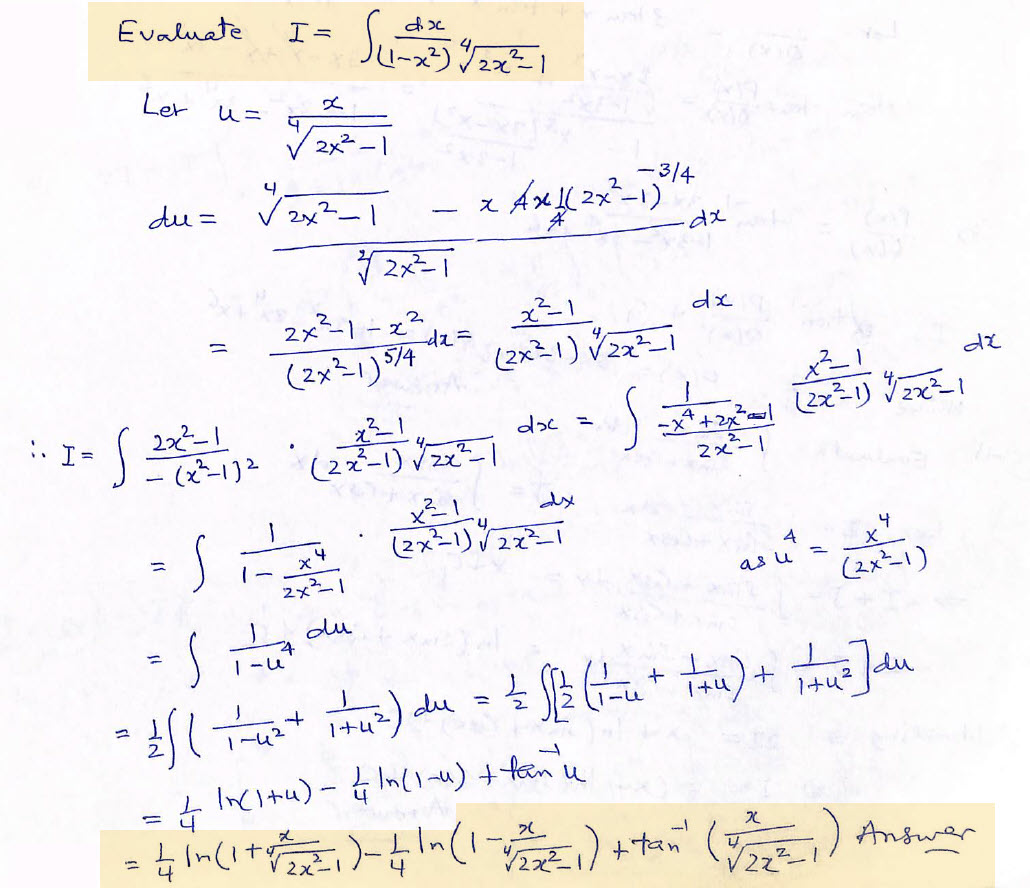 Evaluate I = ∫ dx / ((1-x²) ⁴√(2x²-1))
Let u = x / ⁴√(2x²-1)
du = (⁴√(2x²-1) - x 4x 1/4 (2x²-1)^(-3/4)) / ²√(2x²-1) dx
= (2x²-1-x²) / (2x²-1)^(5/4) dx = (x²-1) / ((2x²-1) ⁴√(2x²-1)) dx
∴ I = ∫ (2x²-1) / (-(x²-1)²) · (x²-1) / ((2x²-1) ⁴√(2x²-1)) dx = ∫ 1 / ((-x⁴+2x²-1) / (2x²-1)) (x²-1) / ((2x²-1) ⁴√(2x²-1)) dx
= ∫ 1 / (1 - x⁴/(2x²-1)) · (x²-1) / ((2x²-1) ⁴√(2x²-1)) dx as u⁴ = x⁴ / (2x²-1)
= ∫ 1/(1-u⁴) du
= 1/2 ∫ (1/(1-u²) + 1/(1+u²)) du = 1/2 ∫ [1/2 (1/(1-u) + 1/(1+u)) + 1/(1+u²)] du
= 1/4 ln(1+u) - 1/4 ln(1-u) + tan⁻¹ u
= 1/4 ln(1 + x/⁴√(2x²-1)) - 1/4 ln(1 - x/⁴√(2x²-1)) + tan⁻¹ (x/⁴√(2x²-1)) Answer